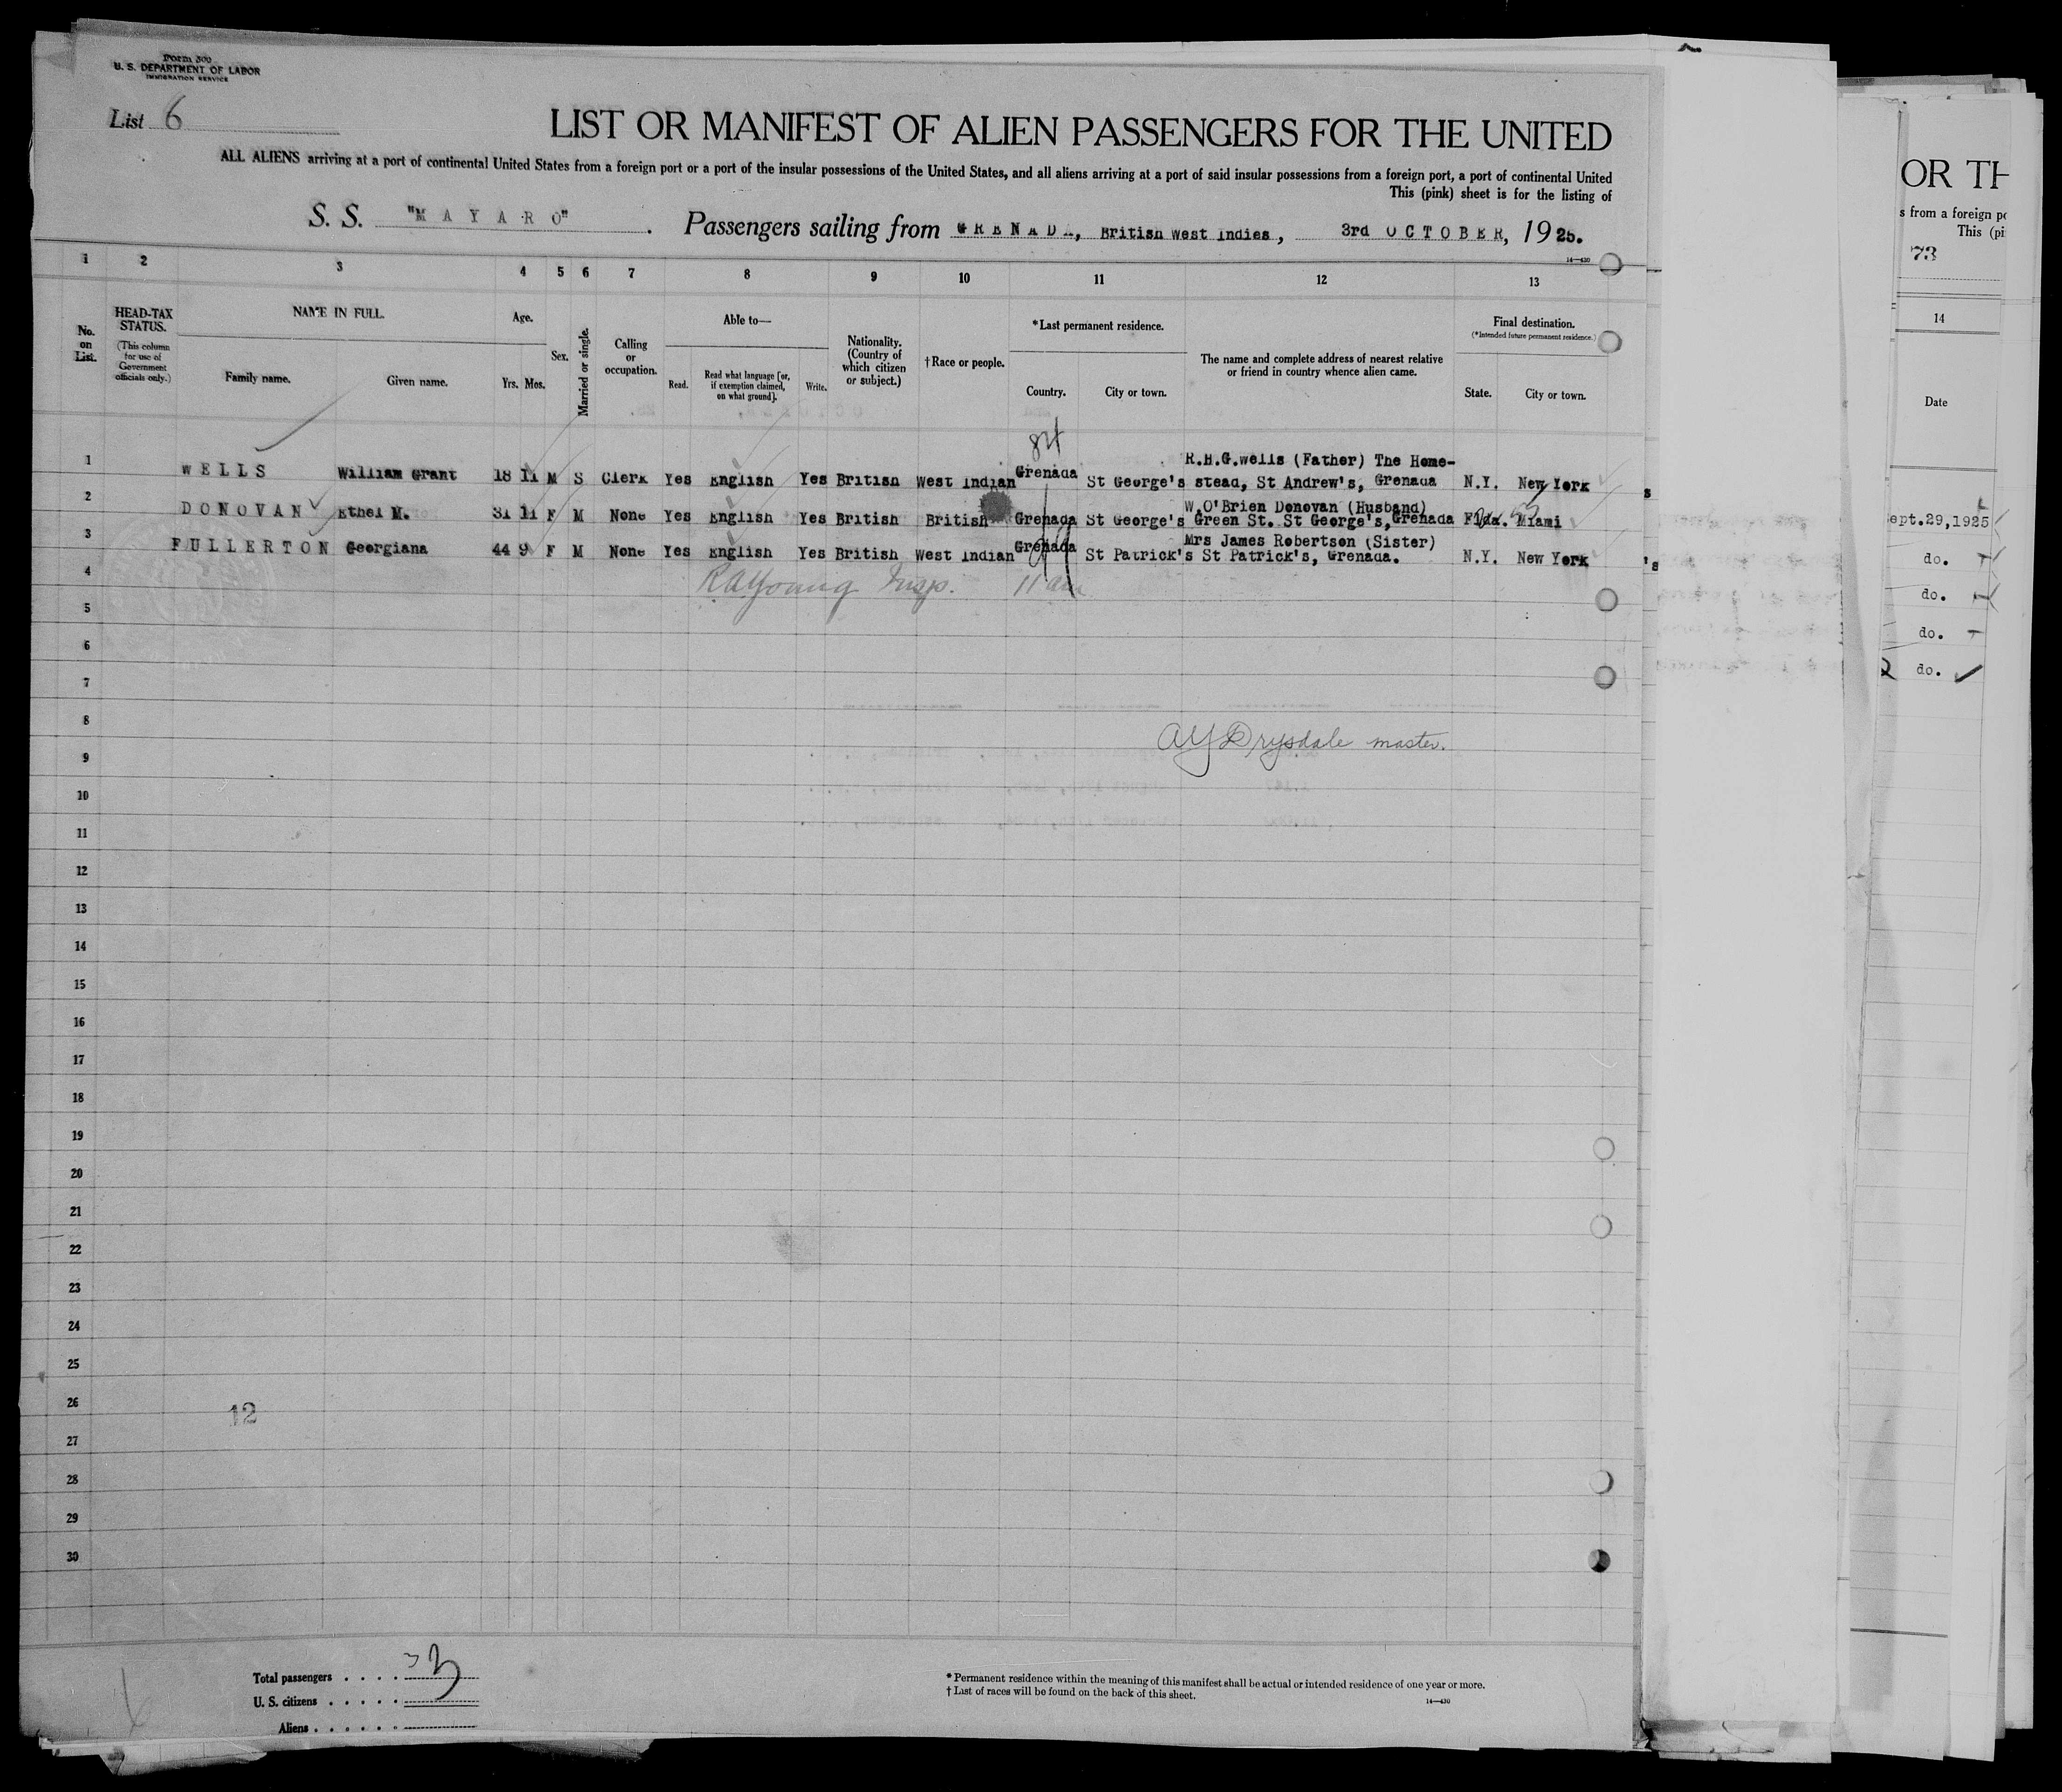 Form 500
U. S. DEPARTMENT OF LABOR
IMMIGRATION SERVICE
List 6
LIST OR MANIFEST OF ALIEN PASSENGERS FOR THE UNITED
ALL ALIENS arriving at a port of continental United States from a foreign port or a port of the insular possessions of the United States, and all aliens arriving at a port of said insular possessions from a foreign port, a port of continental United
This (pink) sheet is for the listing of
S. S. "MAYARO". Passengers sailing from GRENADA, British West Indies, 3rd OCTOBER, 1925.
14—430
1 2 3 4 5 6 7 8 9 10 11 12 13
No. on List.
HEAD-TAX STATUS.
(This column for use of Government officials only.)
NAME IN FULL.
Family name. Given name.
Age.
Yrs. Mos.
Sex.
Married or single.
Calling or occupation.
Able to—
Read. Read what language [or, if exemption claimed, on what ground]. Write.
Nationality. (Country of which citizen or subject.)
†Race or people.
*Last permanent residence.
Country. City or town.
The name and complete address of nearest relative or friend in country whence alien came.
Final destination.
(*Intended future permanent residence.)
State. City or town.
84
R.H.G.Wells (Father) The Home-
1 WELLS William Grant 18 11 M S Clerk Yes English Yes British West Indian Grenada St George's stead, St Andrew's, Grenada N.Y. New York
W.O'Brien Donovan (Husband)
2 DONOVAN Ethel M. 31 11 F M None Yes English Yes British British Grenada St George's Green St. St George's, Grenada Flda. Miami
Mrs James Robertson (Sister)
3 FULLERTON Georgiana 44 9 F M None Yes English Yes British West Indian Grenada St Patrick's St Patrick's, Grenada. N.Y. New York
4 RA Young Insp. 11 am
5
6
7
8
AY Drysdale master.
9
10
11
12
13
14
15
16
17
18
19
20
21
22
23
24
25
26
12
27
28
29
30
Total passengers . . . . 3
U. S. citizens . . . . .
Aliens . . . . . .
* Permanent residence within the meaning of this manifest shall be actual or intended residence of one year or more.
† List of races will be found on the back of this sheet.
14—430
s
's
OR TH
s from a foreign po
This (pi
73
14
Date
ept.29,1925
do.
do.
do.
do.